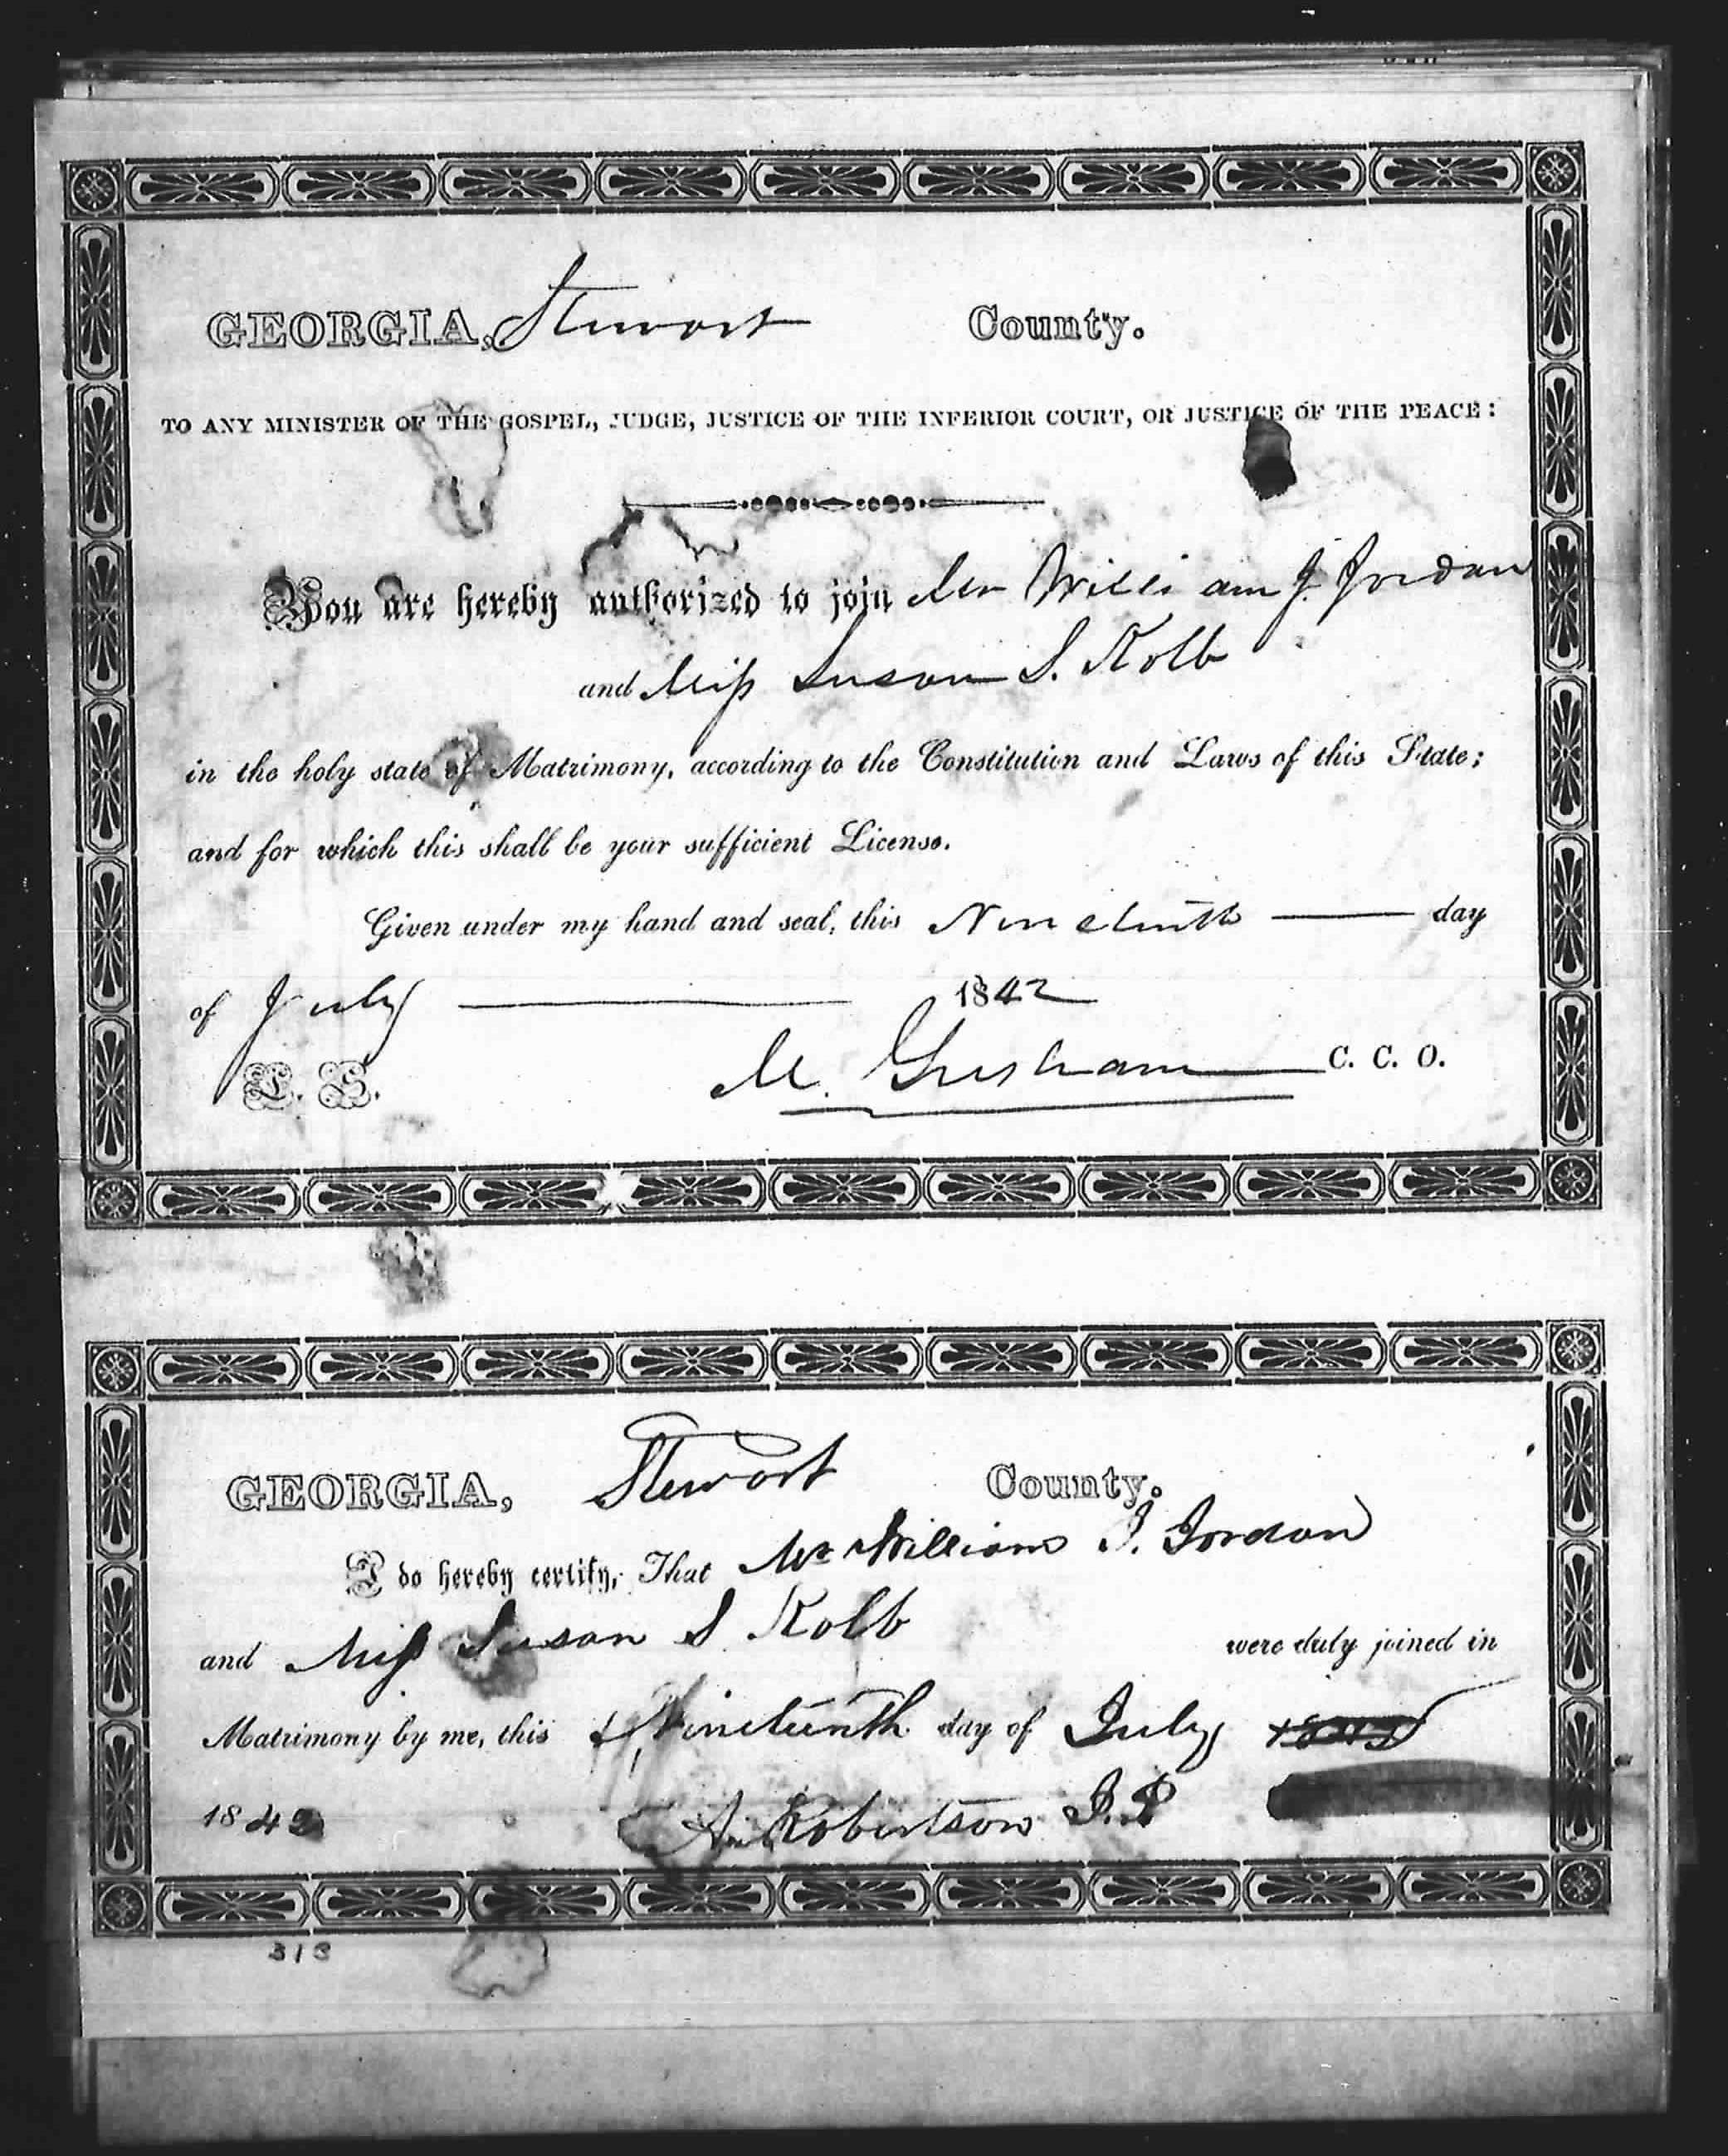 GEORGIA, Stewart County.
TO ANY MINISTER OF THE GOSPEL, JUDGE, JUSTICE OF THE INFERIOR COURT, OR JUSTICE OF THE PEACE:
You are hereby authorized to join Mr William J. Jordan
and Miss Susan S. Kolb
in the holy state of Matrimony, according to the Constitution and Laws of this State;
and for which this shall be your sufficient License.
Given under my hand and seal, this Nineteenth day
of July 1842
L. S. M. Gresham C. C. O.
GEORGIA, Stewart County.
I do hereby certify, That Mr William J. Jordan
and Miss Susan S Kolb were duly joined in
Matrimony by me, this Nineteenth day of July
1842 Robertson J. P
313